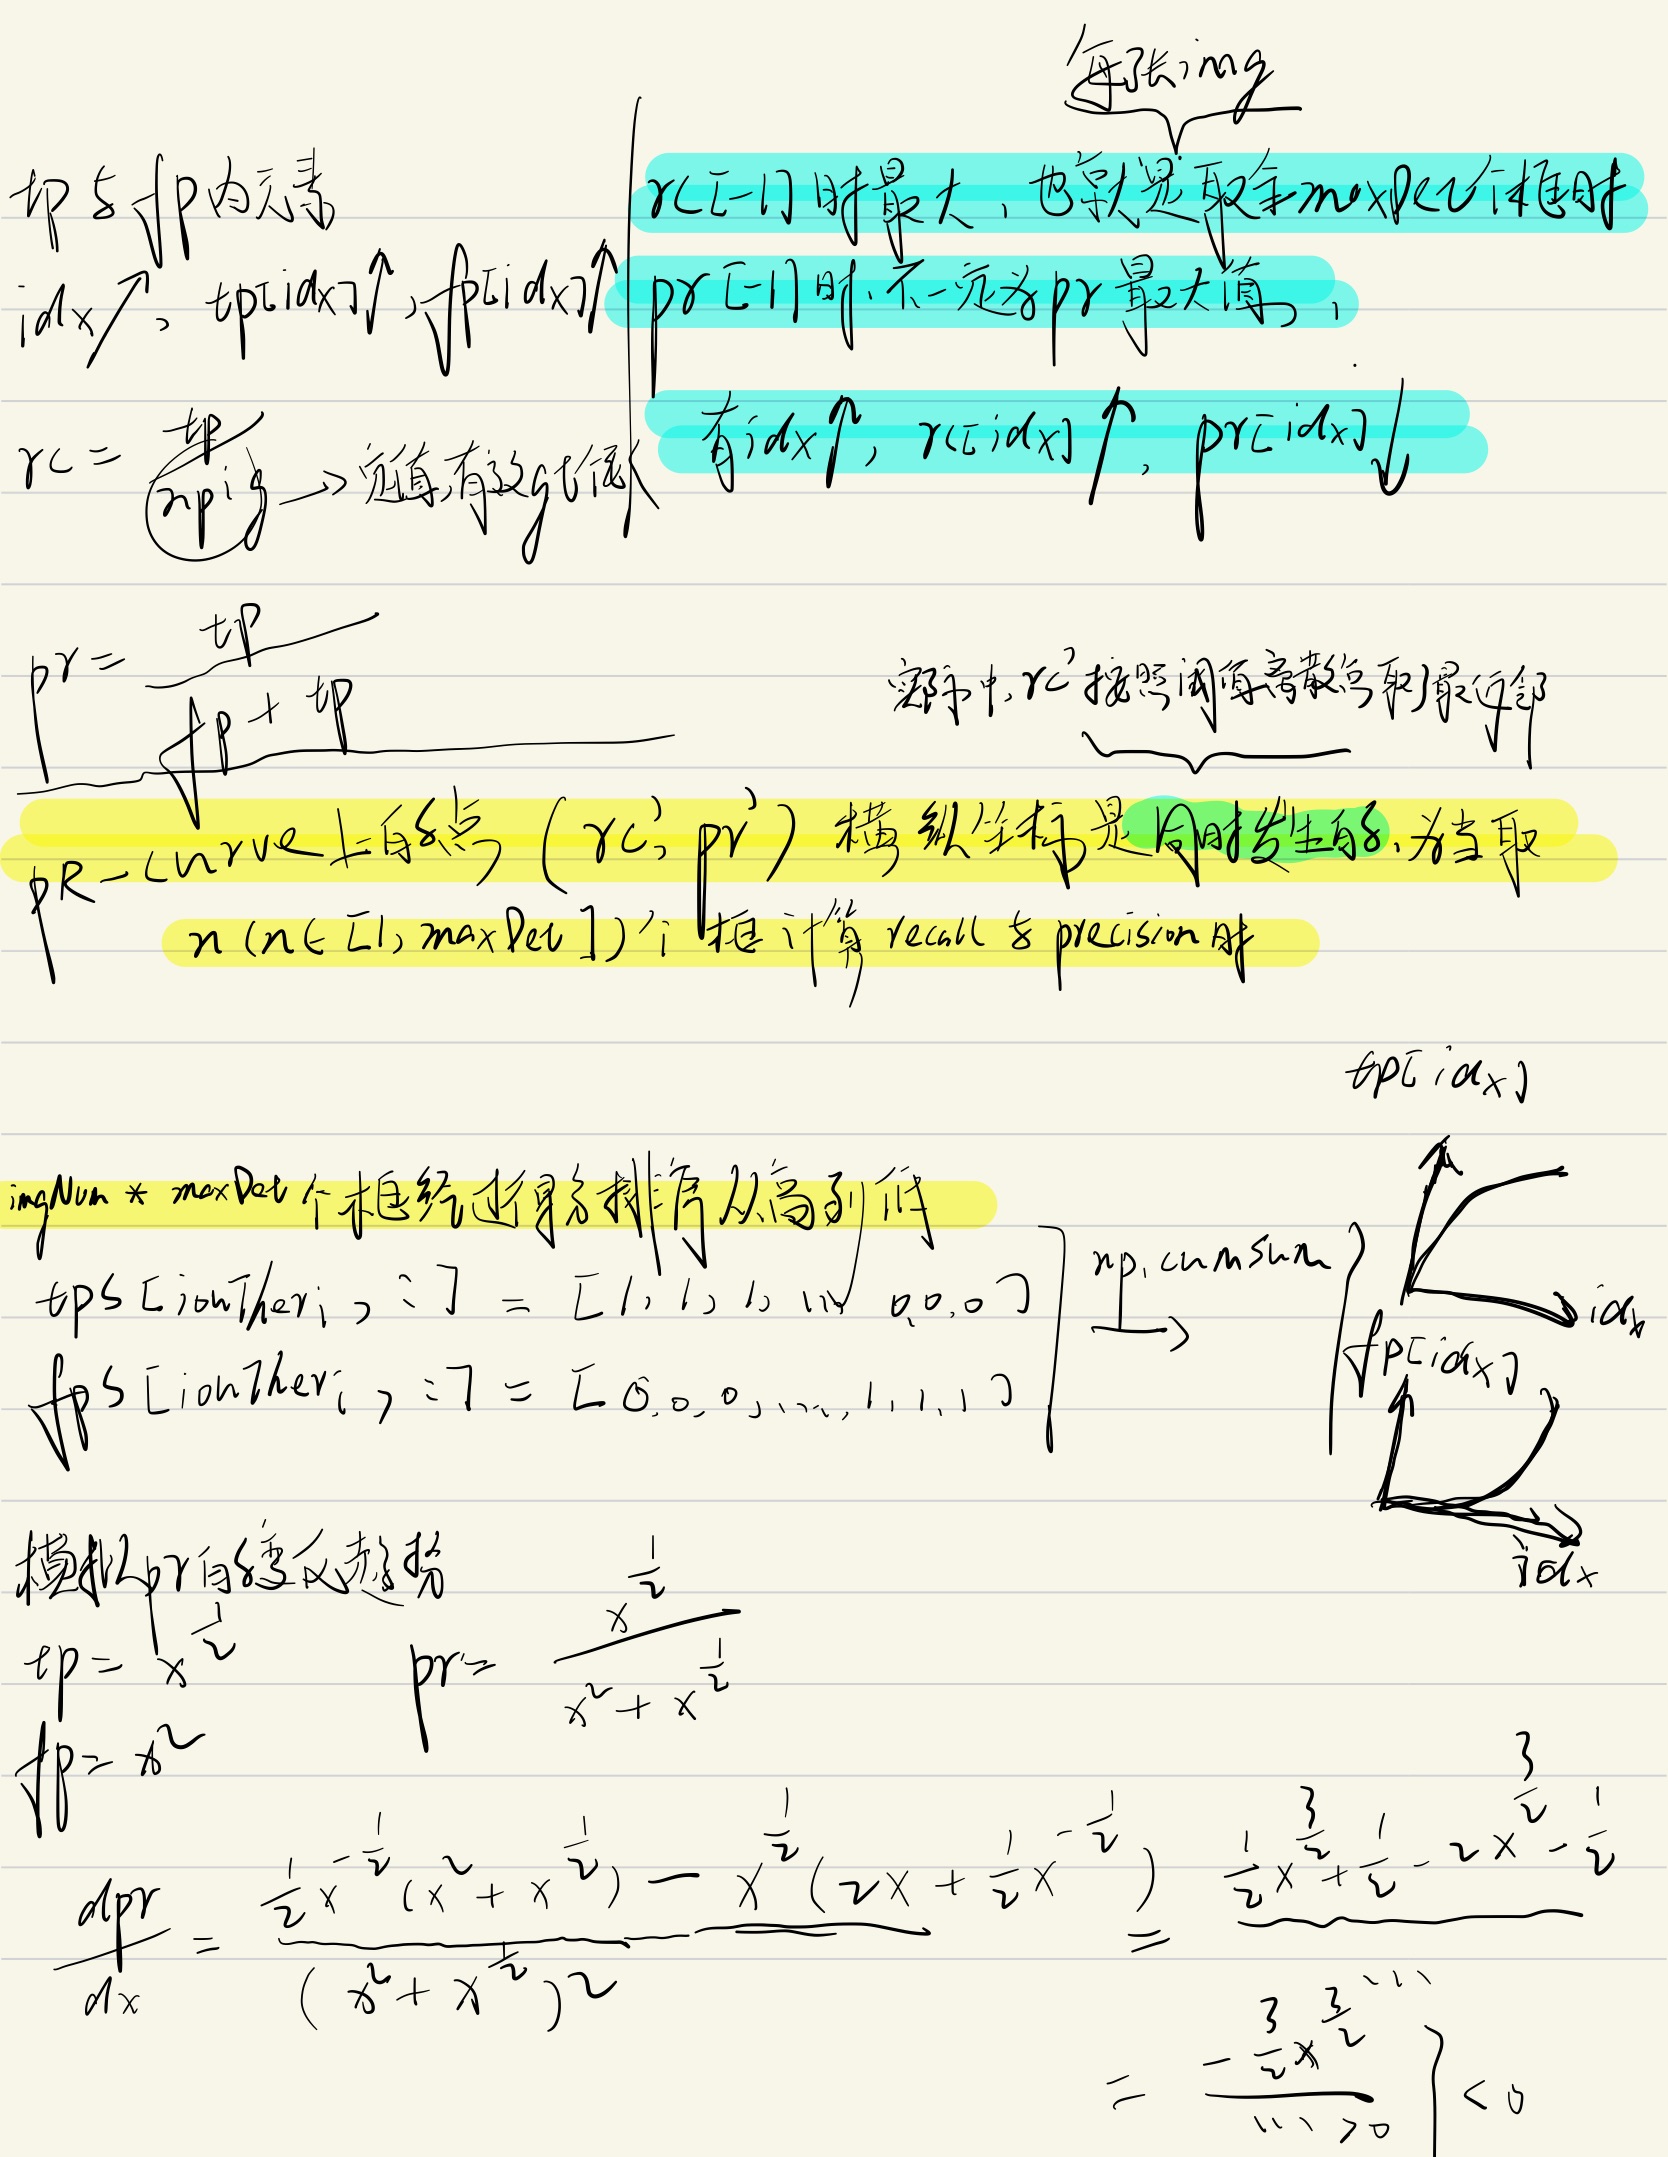 每张img
tp与fp内元素
idx↗, tp[idx]↑, fp[idx]↑
rc = tp / npig → 定值,有效gt个数
rc[-1]时最大,也就是取全maxDet个框时
pr[-1]时,不一定为pr最大值,
有idx↑, rc[idx]↑, pr[idx]↓
pr = tp / fp + tp
实际中,rc'按照阈值离散点取最近邻
PR-curve上的点 (rc', pr') 横纵坐标是同时发生的,为当取
n (n∈[1, maxDet]) 个框计算 recall 与 precision 时
imgNum * maxDet 个框经过得分排序从高到低
tps[iouTher_i, :] = [1, 1, 1, ... 0,0,0]
fps[iouTher_i, :] = [0,0,0,...,1,1,1,]
np.cumsum →
tp[idx]
idx
fp[idx]
idx
模拟pr的变化趋势
tp = x^{1/2}
fp = x^2
pr = x^{1/2} / x^2 + x^{1/2}
dpr/dx = 1/2 x^{-1/2} (x^2 + x^{1/2}) - x^{1/2} (2x + 1/2 x^{-1/2}) / (x^2 + x^{1/2})^2 = 1/2 x^{3/2} + 1/2 - 2x^{3/2} - 1/2
= -3/2 x^{3/2} ... / ... >0 } < 0